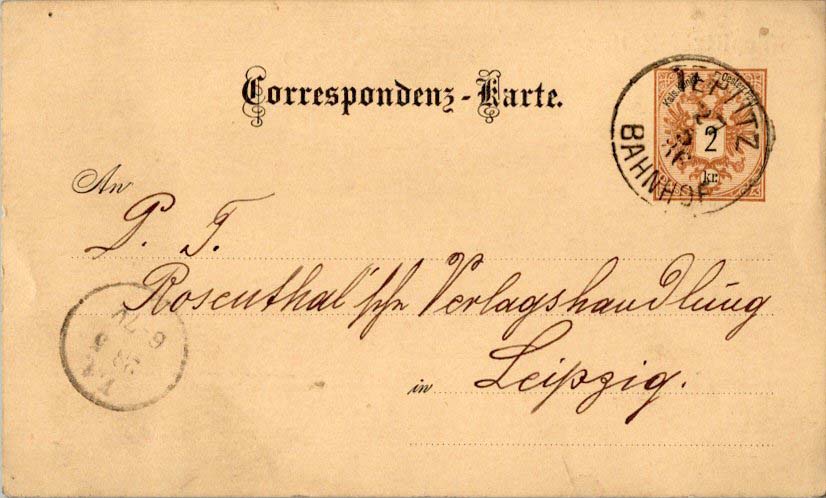 Correspondenz-Karte.
2
kr.
TEPLITZ
27
5
86
BAHNHOF
An
P. T.
Rosenthal'sche Verlagshandlung
in Leipzig.